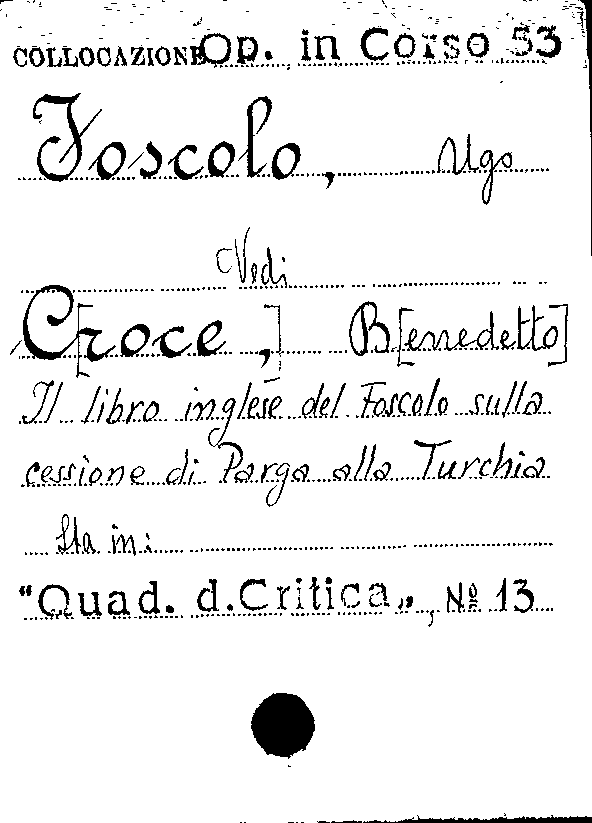 COLLOCAZIONE Op. in Corso 53
Foscolo, Ugo
Vedi
C[roce,] B[enedetto]
Il libro inglese del Foscolo sulla
cessione di Parga alla Turchia
Sta in:
"Quad. d. Critica", Nº 13